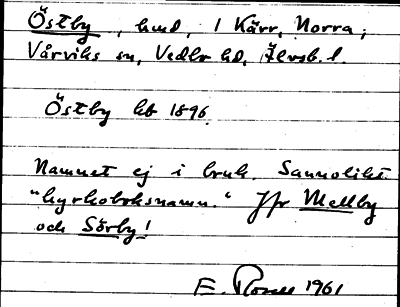 Östby, hmd, i Kärr, Norra,
Vårviks sn, Vedbo hd, Älvsb. l.
Östby hb 1896.
Namnet ej i bruk. Sannolikt
"kyrkoboksnamn." Jfr Mellby
och Sörby!
E. 1961